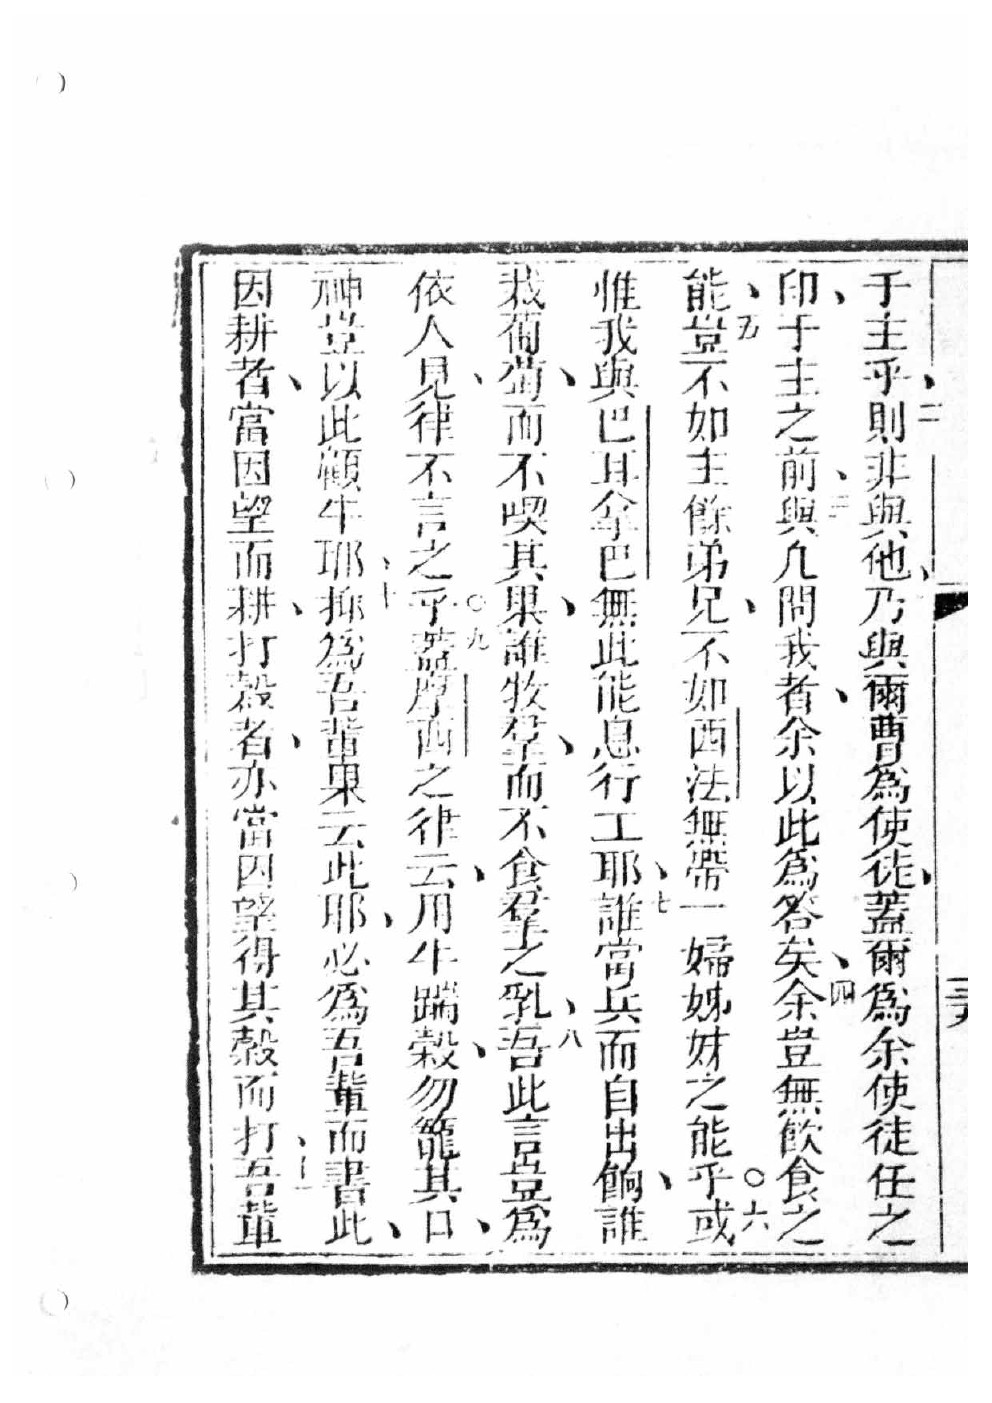 于主乎、二則非與他、乃與爾曹爲使徒、蓋爾爲余使徒任之
印、于主之前、三與凢問我者、余以此爲答矣、四余豈無飲食之
能、五豈不如主餘弟兄、不如西法無帶一婦姊妹之能乎○六或
惟我與巴耳拿巴無此能息行工耶、七誰當兵而自出餉、誰
栽葡萄、而不喫其果、誰牧羣、而不食羣之乳、八吾此言豈爲
依人見、律不言之乎○九葢摩西之律云、用牛踹穀、勿籠其口、
神豈以此顧牛耶、十抑爲吾輩果云此耶、必爲吾輩而書此、
因耕者、當因望而耕、打穀者、亦當因望得其穀而打、十一吾輩
三九